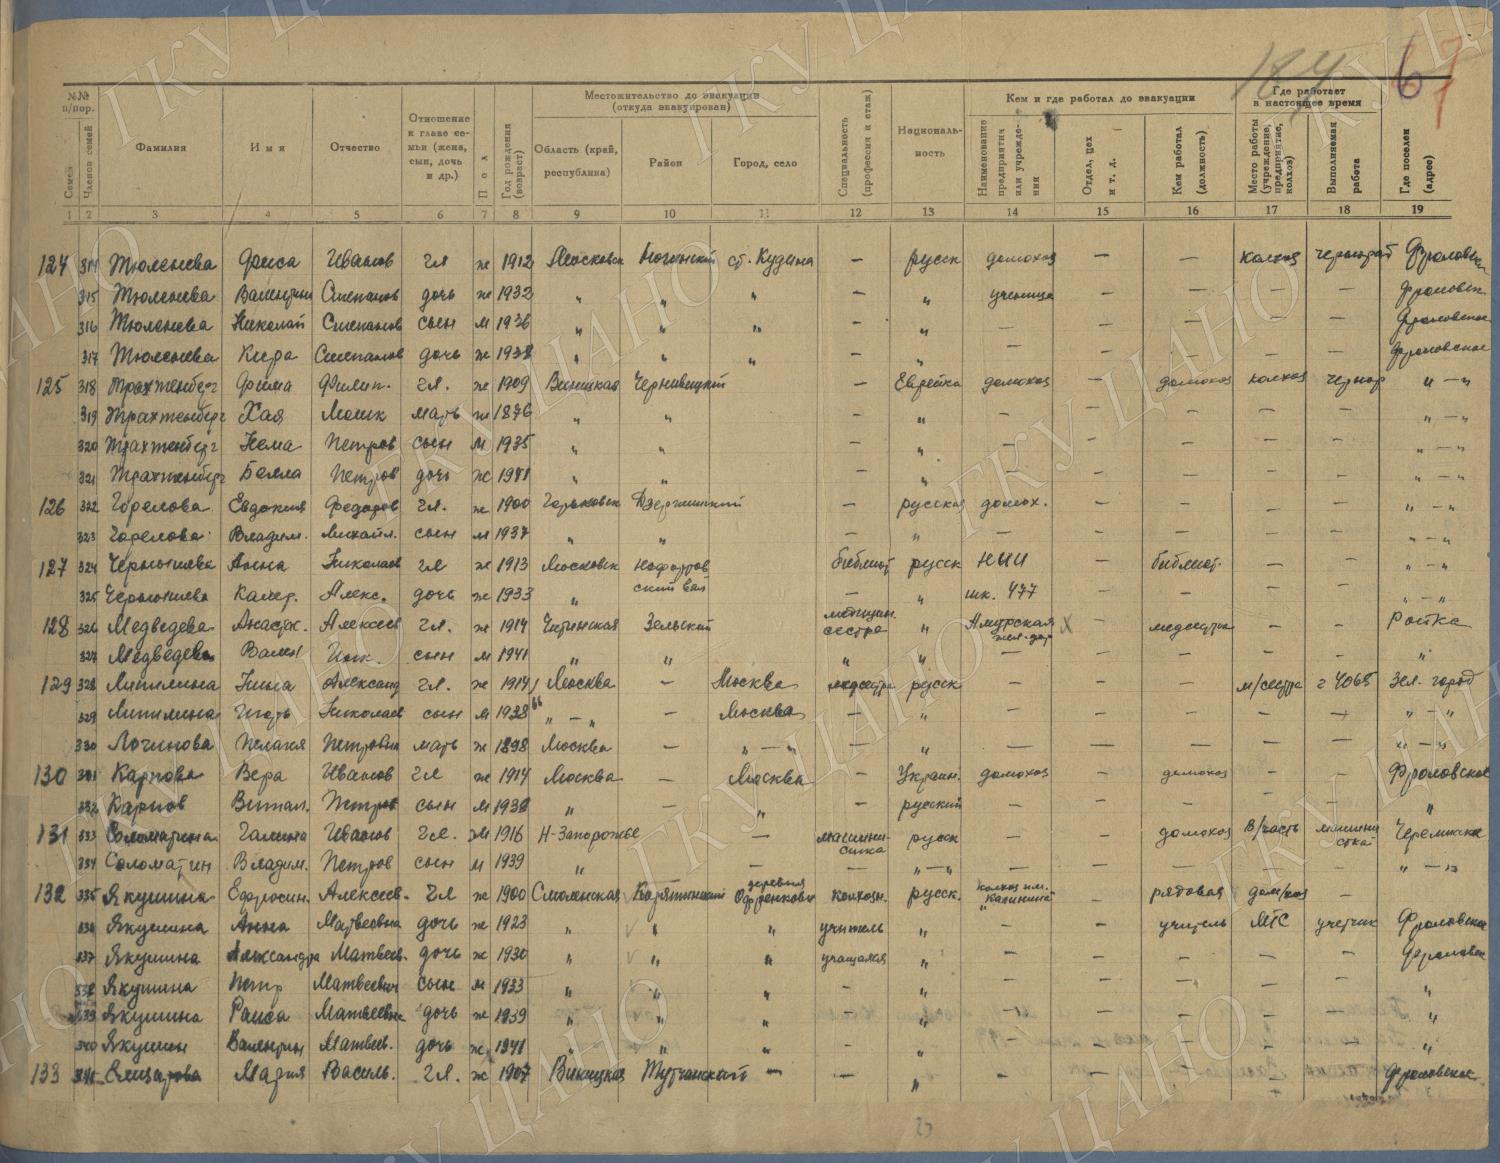 184 67
№№ п/пор. Местожительство до эвакуации (откуда эвакуирован) Кем и где работал до эвакуации Где работает в настоящее время
Семей Членов семей Фамилия Имя Отчество Отношение к главе семьи (жена, сын, дочь и др.) Пол Год рождения (возраст) Область (край, республика) Район Город, село Специальность (профессия и стаж) Национальность Наименование предприятия или учреждения Отдел, цех и т. д. Кем работал (должность) Место работы (учреждение, предприятие, колхоз) Выполняемая работа Где поселен (адрес)
1 2 3 4 5 6 7 8 9 10 11 12 13 14 15 16 17 18 19
124 314 Тюленева Фаиса Иванов гл ж 1912 Московск Ногинский ст. Кудина — русск домохоз — — колхоз чернораб Фроловск
315 Тюленева Валентин Степанов дочь ж 1932 " " " — " ученица — — — — Фроловск
316 Тюленева Николай Степанов сын м 1936 " " " — " — — — — — Фроловское
317 Тюленева Кира Степанов дочь ж 1938 " " " — " — — — — — Фроловское
125 318 Трахтенберг Фима Филип. гл. ж 1909 Виницкая Чернивицкий — Еврейка домохоз — домохоз колхоз чернор " — "
319 Трахтенберг Хая Мошк мать ж 1876 " " — " — — — — — " — "
320 Трахтенберг Нема Петров сын м 1935 " " — " — — — — — " — "
321 Трахтенберг Белла Петров дочь ж 1941 " " — " — — — — — " — "
126 322 Горелова Евдокия Федоров гл. ж 1900 Горьковск Дзержинский — русская домох. — — — — " — "
323 Горелова Владим. Михайл. сын м 1937 " " — " — — — — — " — "
127 324 Чернышева Анна Николаев гл ж 1913 Московск библиот русск НИИ — библиот. — — " — "
325 Чернышева Калер. Алекс. дочь ж 1933 " — " шк. 477 — — — — " — "
128 326 Медведева Анастас. Алексеев гл. ж 1914 Читинская Зельский сестра " Амурская жел. дор — медсестра — — Ройка
327 Медведева Вален Ник. сын м 1941 " " " " — — — — — "
129 328 Липилина Нина Александ гл. ж 1914 Москва — Москва медсестра русск — — — м/сестра г 4065 Зел. город
329 Липилина Игорь Николаев сын м 1938 " — " — Москва — " — — — — — " — "
330 Логинова Пелагея Петровна мать ж 1898 Москва — " — " — " — — — — — " — "
130 331 Карпова Вера Иванов гл ж 1914 Москва — Москва — Украин. домохоз — домохоз — — Фроловское
332 Карпов Витал. Петров сын м 1938 " — " — русский — — — — — "
131 333 Соломатина Галина Иванов гл. ж 1916 Н-Запорожье — машинистка русск — — домохоз В/часть машинистка
334 Соломатин Владим. Петров сын м 1939 " — — " — " — — — — — " — "
132 335 Якушина Ефросин. Алексеев. гл ж 1900 Смоленская деревня колхозн. русск. колхоз им. Калинина — рядовая дом/хоз —
336 Якушина Анна Матвеевна дочь ж 1923 " " " учитель " — — учитель МТС учетчик Фроловское
337 Якушина Александра Матвеев. дочь ж 1930 " " " учащаяся " — — — — — Фроловск
338 Якушина Петр Матвеевич сын м 1933 " " " — " — — — — — "
339 Якушина Раиса Матвеевна дочь ж 1939 " " " — " — — — — — "
340 Якушин Валентин Матвеев. дочь ж 1941 " " " — " — — — — — "
133 341 Елизарова Мария Василь. гл. ж 1907 Виницкая — — " — — — — — Фроловское